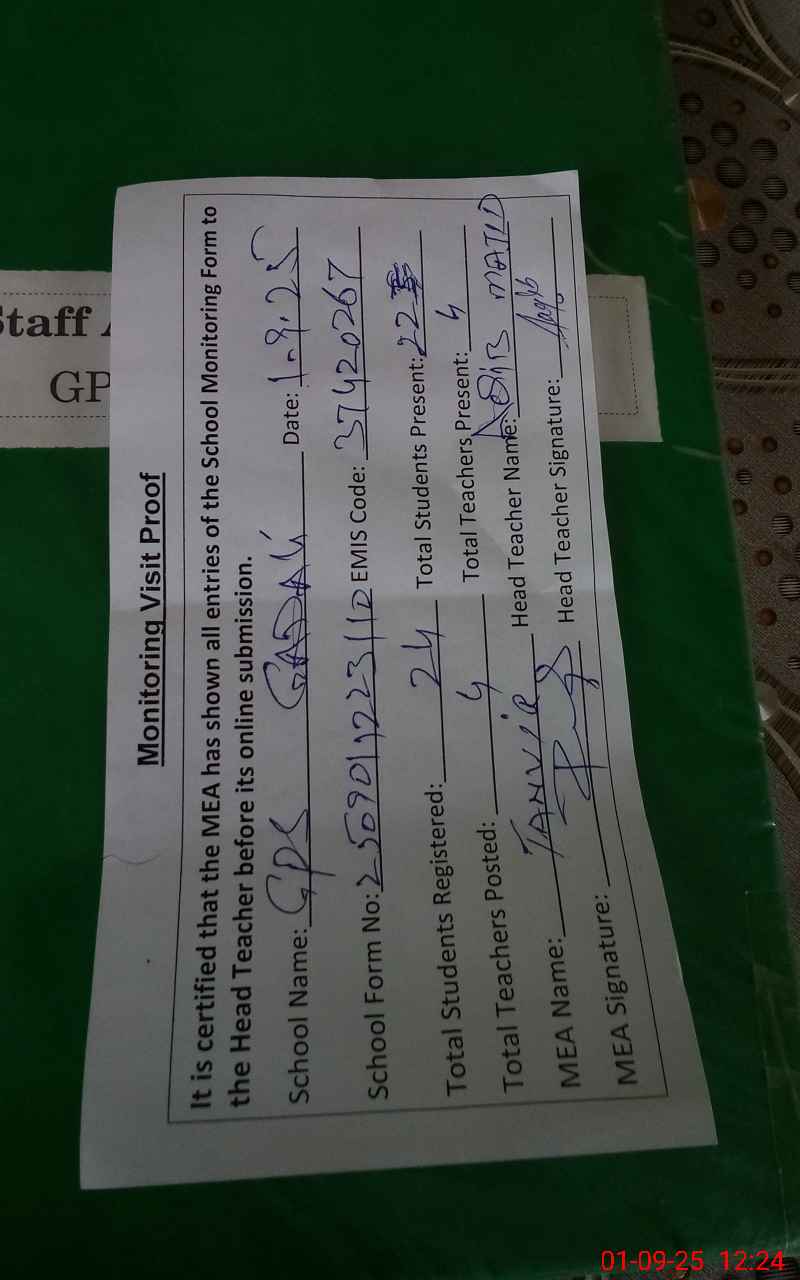 Monitoring Visit Proof
It is certified that the MEA has shown all entries of the School Monitoring Form to
the Head Teacher before its online submission.
School Name: GPS GADAH Date: 1.9.25
School Form No: EMIS Code: 37420267
Total Students Registered: 24 Total Students Present: 22
Total Teachers Posted: 4 Total Teachers Present: 4
MEA Name: TANVIR Head Teacher Name: AQIB MAJID
MEA Signature: Head Teacher Signature:
Staff
GP
01-09-25 12:24